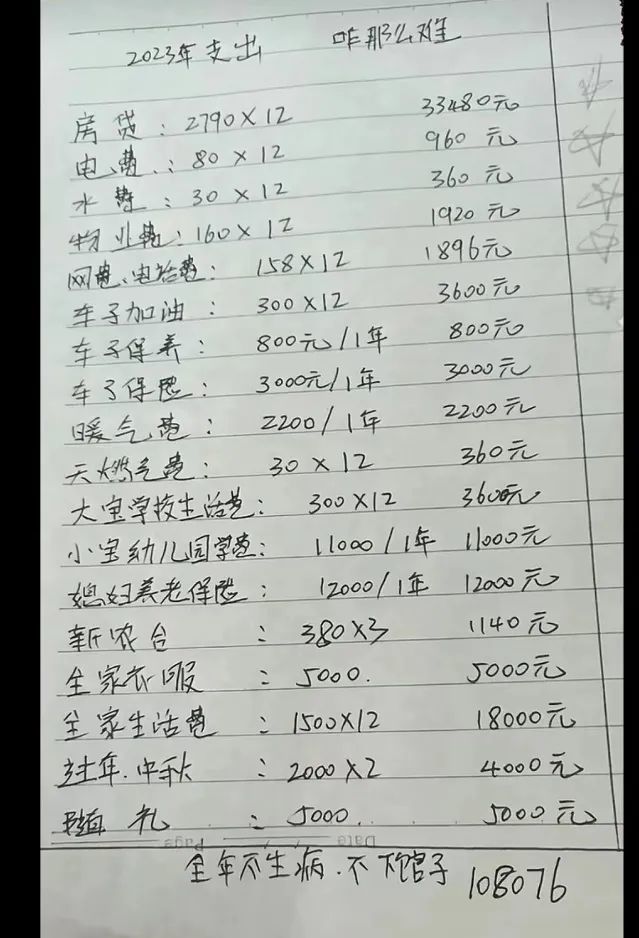 2023年支出 咋那么难
房贷：2790×12 33480元
电费：80×12 960元
水费：30×12 360元
物业费：160×12 1920元
网费、电话费：158×12 1896元
车子加油：300×12 3600元
车子保养：800元/1年 800元
车子保险：3000元/1年 3000元
暖气费：2200/1年 2200元
天燃气费：30×12 360元
大宝学校生活费：300×12 3600元
小宝幼儿园学费：11000/1年 11000元
媳妇养老保险：12000/1年 12000元
新农合：380×3 1140元
全家衣服：5000. 5000元
全家生活费：1500×12 18000元
过年.中秋：2000×2 4000元
随礼：5000. 5000元
Date Page
全年不生病.不下馆子 108076